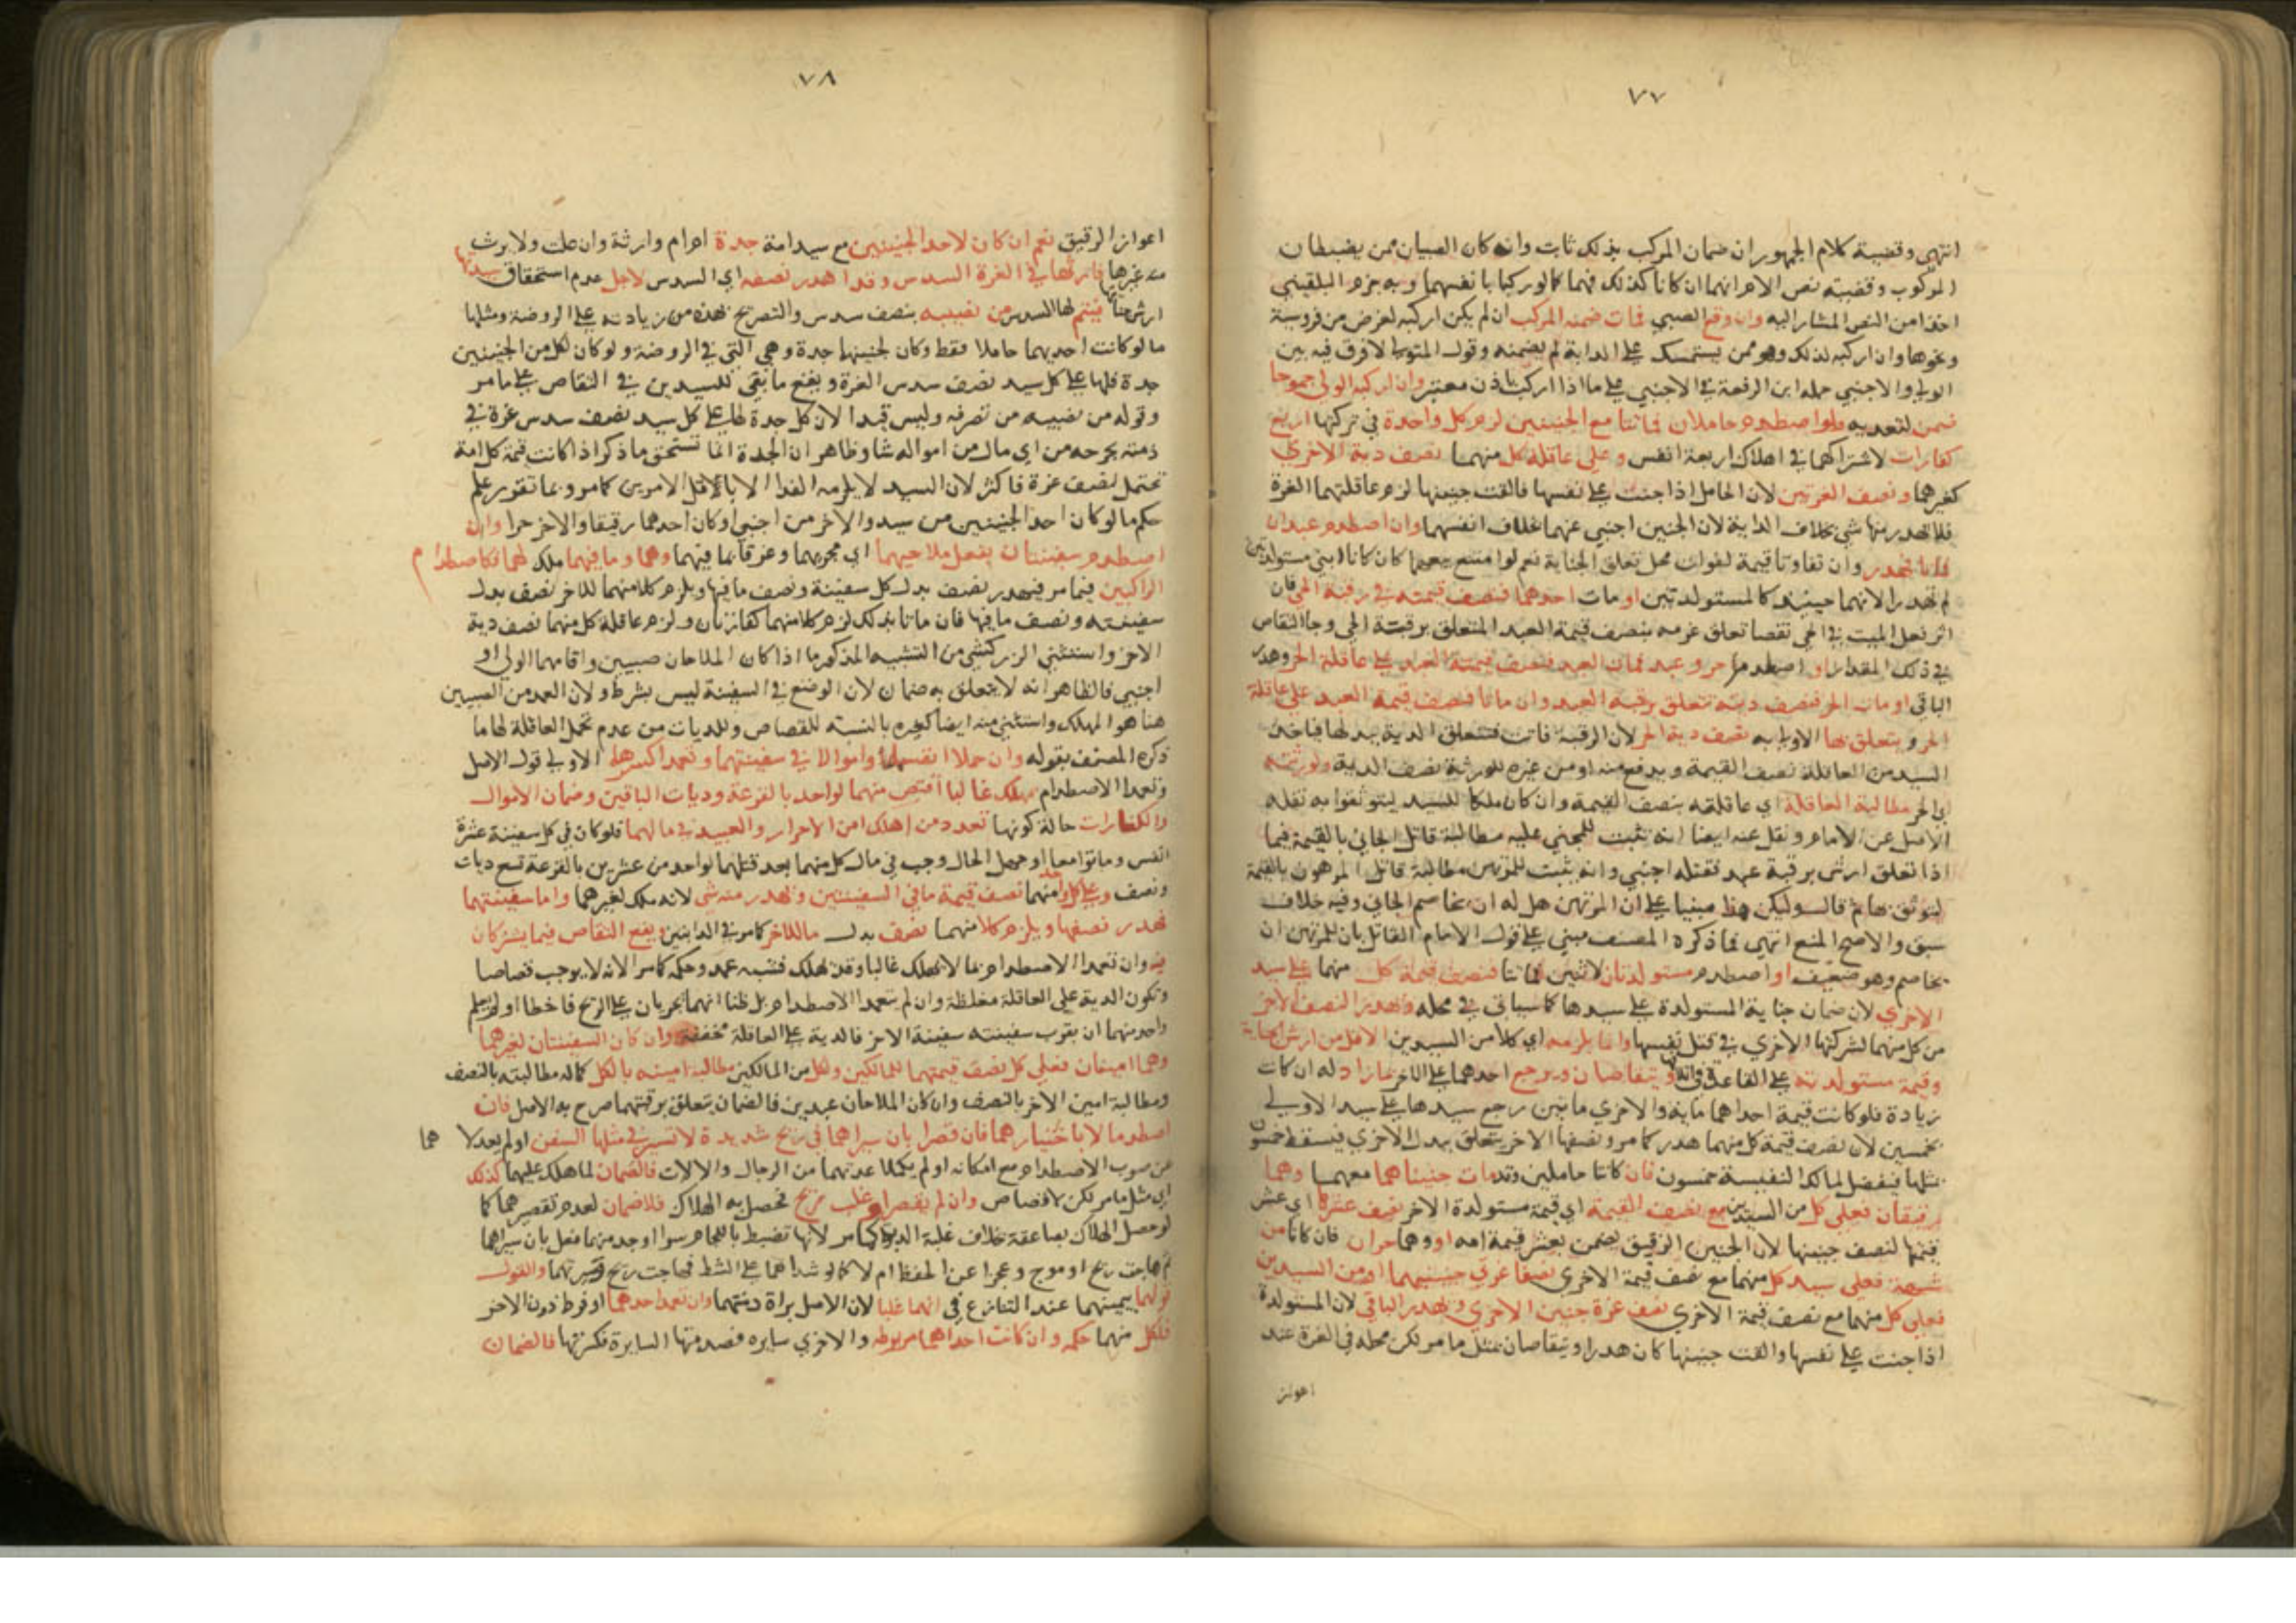 ٧٧
انتهى وقضية كلام الجمهور ان ضمان المركب بذلك ثابت وان كان الصبيان ممن يضبطان
المركوب وقضيته نص الام انهما ان كانا كذلك فهما كما لو ركبا بانفسهما وبه جزم البلقيني
اخذا من النص المشار اليه وان وقع الصبي فمات ضمنه المركب ان لم يكن اركبه لغرض من فروسية
ونحوها وان اركبه لذلك وهو ممن يستمسك على الدابة لم يضمنه وقول المتولي لا فرق فيه بين
الولي والاجنبي حمله ابن الرفعة في الاجنبي على ما اذا اركب باذن معتبر وان اركبه الولي جموحا
ضمن لتعديه ولو اصطدم حاملان فماتتا مع الجنينين لزم كل واحدة في تركتها اربع
كفارات لاشتراكهما في اهلاك اربعة انفس وعلى عاقلة كل منهما نصف دية الاخرى
كغيرهما ونصف الغرتين لان الحامل اذا جنت على نفسها فالقت جنينها لزم عاقلتها الغرة
فلا يهدر منها شي بخلاف الدابة لان الجنين اجنبي عنهما بخلاف انفسهما وان اصطدم عبدان
فماتا فهدر وان تفاوتا قيمة لفوات محل تعلق الجناية نعم لو امتنع بيعهما كان كانا ابني مستولدتين
لم يهدرا لانهما حينئذ كالمستولدتين او مات احدهما فنصف قيمته في رقبة الحي فان
اثر فعل الميت في الحي نقصا تعلق غرمه بنصف قيمة العبد المتعلق برقبة الحي وجا التقاص
في ذلك المقدار او اصطدم حر وعبد فمات العبد فنصف قيمة العبد على عاقلة الحر وهدر
الباقي او مات الحر فنصف ديته تتعلق برقبة العبد وان ماتا فنصف قيمة العبد على عاقلة
الحر ويتعلق بها الاولى به نصف دية الحر لان الرقبة فاتت فتتعلق الدية ببدلها فياخذ
السيد من العاقلة نصف القيمة ويدفع منه او من غيره للورثة نصف الدية ولورثته
اي الحر مطالبة العاقلة اي عاقلته بنصف القيمة وان كان ملكا للسيد ليتوثقوا به نقله
الاصل عن الامام ونقل عنه ايضا انه يثبت للمجني عليه مطالبة قاتل الجاني بالقيمة فيما
اذا تعلق ارش برقبة عبد فقتله اجنبي وانه يثبت للمرتهن مطالبة قاتل المرهون بالقيمة
ليتوثق بها ثم قال وليكن هذا مبنيا على ان المرتهن هل له ان يخاصم الجاني وفيه خلاف
سبق والاصح المنع انتهى فما ذكره المصنف مبني على قول الامام القائل بان للمرتهن ان
يخاصم وهو ضعيف او اصطدم مستولدتان لاثنين فماتتا فنصف قيمة كل منهما على سيد
الاخرى لان ضمان جناية المستولدة على سيدها كما سياتي في محله ويهدر النصف الاخر
من كل منهما لشركتها الاخرى في قتل نفسها وانما يلزمه اي كلا من السيدين الاقل من ارش الجناية
وقيمة مستولدته على القاعدة في ويتقاصان ويرجع احدهما على الاخر بما زاد له ان كانت
زيادة فلو كانت قيمة احداهما ماية والاخرى مايتين رجع سيدها على سيد الاولى
بخمسين لان نصف قيمة كل منهما هدر كما مر ونصفها الاخر يتعلق ببدل الاخرى فيسقط خمسون
بمثلها فيفضل لمالك النفيسة خمسون فان كانتا حاملين وقد مات جنيناهما معهما وهما
رقيقان فعلى كل من السيدين مع نصف القيمة اي قيمة مستولدة الاخر نصف عشرها اي عشر
قيمتها لنصف جنينها لان الجنين الرقيق يضمن بعشر قيمة امه او وهما حران فان كانا من
شبهة فعلى سيد كل منهما مع نصف قيمة الاخرى نصفا غرتي جنينيهما او من السيدين
فعلى كل منهما مع نصف قيمة الاخرى نصف غرة جنين الاخرى ويهدر الباقي لان المستولدة
اذا جنت على نفسها والقت جنينها كان هدرا ويتقاصان بمثل ما مر لكن محله في الغرة عند
اعواز
٧٨
اعواز الرقيق نعم ان كان لاحد الجنينين مع سيد امه جدة ام ام وارثة وان علت ولا يرث
معه غيرها فارثها في الغرة السدس وقد اهدر نصفه اي السدس لاجل عدم استحقاق سيدتها
ارش جنايتها فيتم لها السدس من نصيبه بنصف سدس والتصريح بهذه من زيادته على الروضة ومثلها
ما لو كانت احديهما حاملا فقط وكان لجنينها جدة وهي التي في الروضة ولو كان لكل من الجنينين
جدة فلها على كل سيد نصف سدس الغرة ويقع ما بقي للسيدين في التقاص على ما مر
وقوله من نصيبه من تصرفه وليس قيدا لان كل جدة لها على كل سيد نصف سدس غرة في
ذمته يخرجه من اي مال من امواله شا وظاهر ان الجدة انما تستحق ما ذكر اذا كانت قيمة كل امة
تحتمل نصف غرة فاكثر لان السيد لا يلزمه الفدا الا بالاقل الامرين كما مر وبما تقرر علم
حكم ما لو كان احد الجنينين من سيد والاخر من اجنبي او كان احدهما رقيقا والاخر حرا وان
اصطدم سفينتان بفعل ملاحيهما اي مجريهما وغرقا بما فيهما وهما وما فيهما ملك لهما فكاصطدام
الراكبين فيما مر فيهدر نصف بدل كل سفينة ونصف ما فيها ويلزم كلا منهما للاخر نصف بدل
سفينته ونصف ما فيها فان ماتا بذلك لزم كلا منهما كفارتان ولزم عاقلة كل منهما نصف دية
الاخر واستثنى الزركشي من التشبيه المذكور ما اذا كان الملاحان صبيين واقامهما الولي او
اجنبي فالظاهر انه لا يتعلق به ضمان لان الوضع في السفينة ليس بشرط ولان العمد من الصبيين
هنا هو المهلك واستثنى منه ايضا كغيره بالنسبة للقصاص وللديات من عدم تحمل العاقلة لها ما
ذكره المصنف بقوله وان حملا انفسا واموالا في سفينتهما وتعمدا كسرهما الاولى قول الاصل
وتعمدا الاصطدام بمهلك غالبا اقتص منهما لواحد بالقرعة وديات الباقين وضمان الاموال
والكفارات حالة كونها تعدد من اهلكا من الاحرار والعبيد في مالهما فلو كان في كل سفينة عشرة
انفس وماتوا معا او جهل الحال وجب في مال كل منهما بعد قتلهما لواحد من عشرين بالقرعة تسع ديات
ونصف وعلى كل واحد منهما نصف قيمة ما في السفينتين ولا يهدر منه شي لانه ملك لغيرهما واما سفينتهما
فهدر نصفها ويلزم كلا منهما نصف بدل ما للاخر كما مر في الدابتين ويقع التقاص فيما يشتركان
فيه وان تعمدا الاصطدام بما لا يهلك غالبا وقد يهلك فشبه عمد وحكمه كما مر الا انه لا يوجب قصاصا
وتكون الدية على العاقلة مغلظة وان لم يتعمدا الاصطدام بل ظنا انهما يجريان على الريح فاخطا او لم يعلم
واحد منهما ان بقرب سفينته سفينة الاخر فالدية على العاقلة مخففة وان كان السفينتان لغيرهما
وهما امينان فعلى كل نصف قيمتهما للمالكين ولكل من المالكين مطالبة امينه بالكل كما له مطالبته بالنصف
ومطالبة امين الاخر بالنصف وان كان الملاحان عبدين فالضمان يتعلق برقبتهما صرح به الاصل فان
اصطدما لا باختيارهما فان قصرا بان سيراهما في ريح شديدة لا تسير في مثلها السفن او لم يعدلاهما
عن صوب الاصطدام مع امكانه او لم يكملا عدتهما من الرجال والالات فالضمان لما هلك عليهما كذلك
اي مثل ما مر لكن لا قصاص وان لم يقصرا وغلب ريح فحصل به الهلاك فلا ضمان لعدم تقصيرهما كما
لو حصل الهلاك بصاعقة بخلاف غلبة الدابتين كما مر لانها تضبط باللجام سوا اوجد منهما فعل بان سيراهما
ثم هاجت ريح او موج وعجزا عن الحفظ ام لا كما لو شداهما على الشط فهاجت ريح وسيرتهما والقول
قولهما بيمينهما عند التنازع في انهما غلبا لان الاصل براة ذمتهما وان تعمد احدهما او فرط دون الاخر
فلكل منهما حكمه وان كانت احداهما مربوطة والاخرى سايره فصدمتها السايرة فكسرتها فالضمان